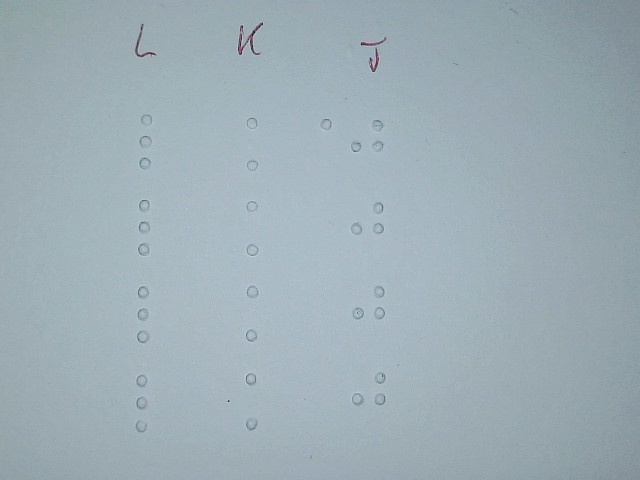 L K J
⠇ ⠅ ⠚
⠇ ⠅ ⠚
⠇ ⠅ ⠚
⠇ ⠅ ⠚